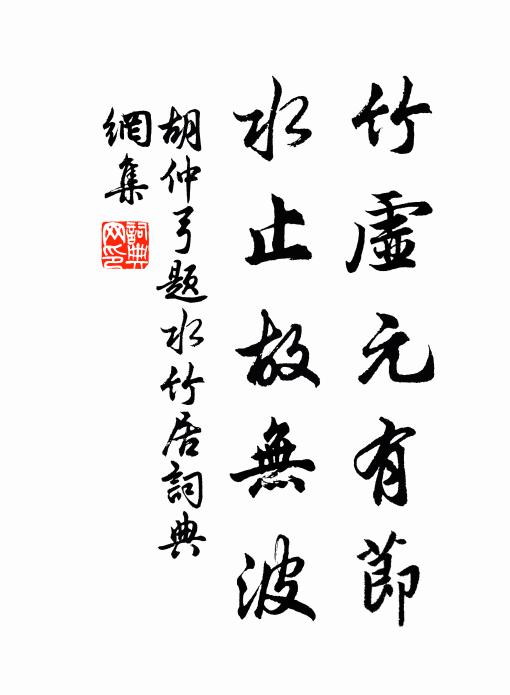 竹虛元有節
水止故無波
胡仲弓題水竹居詞典
網集
詞典網印